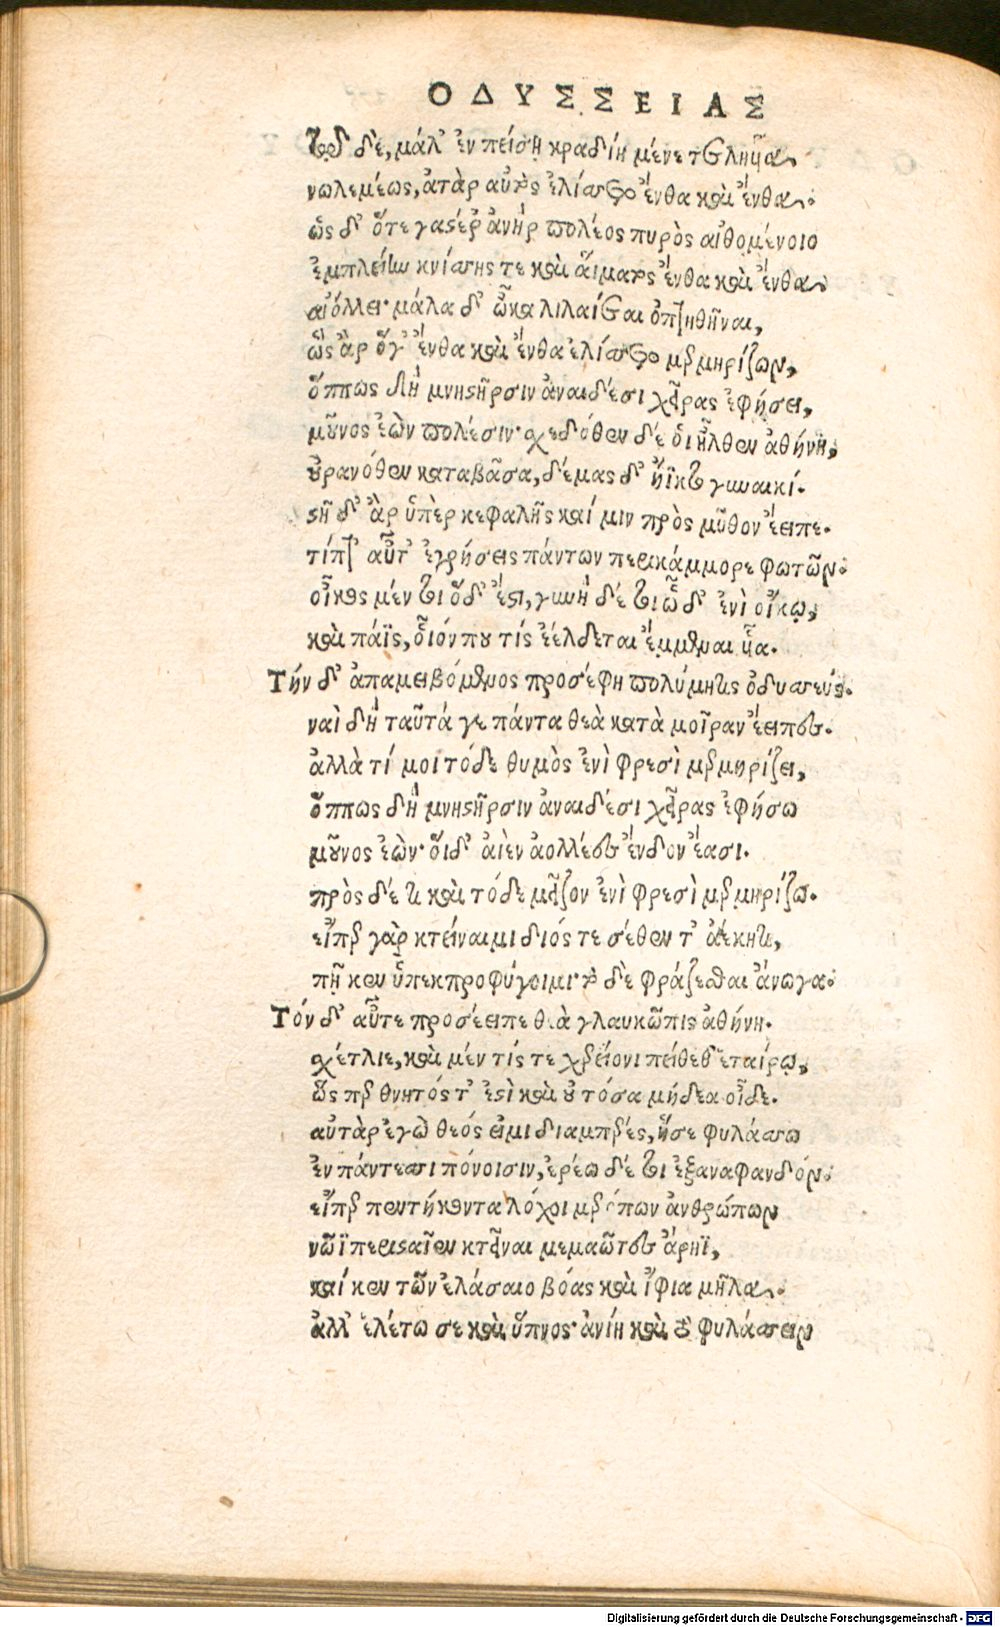 ΟΔΥΣΣΕΙΑΣ
τῷ δὲ, μάλ' ἐν πείσῃ κραδίη μένε τετληῖα,
νωλεμέως, ἀτὰρ αὐτὸς ἑλίσσετο ἔνθα καὶ ἔνθα.
ὡς δ' ὅτε γαστέρ' ἀνὴρ πολέος πυρὸς αἰθομένοιο
ἐμπλείην κνίσσης τε καὶ αἵματος ἔνθα καὶ ἔνθα
αἰόλλει· μάλα δ' ὦκα λιλαίεται ὀπτηθῆναι,
ὣς ἂρ ὅγ' ἔνθα καὶ ἔνθα ἑλίσσετο μερμηρίζων,
ὅππως δὴ μνηστῆρσιν ἀναιδέσι χεῖρας ἐφήσει,
μοῦνος ἐὼν πολέσιν· σχεδόθεν δέ οἱ ἦλθεν ἀθήνη,
οὐρανόθεν καταβᾶσα, δέμας δ' ἤϊκτο γυναικί.
στῆ δ' ἂρ ὑπὲρ κεφαλῆς καί μιν πρὸς μῦθον ἔειπε.
τίπτ' αὖτ' ἐγρήσεις πάντων περικάμμορε φωτῶν.
οἶκος μέν τοι ὅδ' ἐστι, γυνὴ δέ τοι ἥδ' ἐνὶ οἴκῳ,
καὶ πάϊς, οἷόν που τίς ἐέλδεται ἔμμεναι υἷα.
Τὴν δ' ἀπαμειβόμενος προσέφη πολύμητις ὀδυσσεύς.
ναὶ δὴ ταῦτά γε πάντα θεὰ κατὰ μοῖραν ἔειπες.
ἀλλὰ τί μοι τόδε θυμὸς ἐνὶ φρεσὶ μερμηρίζει,
ὅππως δὴ μνηστῆρσιν ἀναιδέσι χεῖρας ἐφήσω
μοῦνος ἐών· οἵδ' αἰὲν ἀολλέες ἔνδον ἔασι.
πρὸς δέ τι καὶ τόδε μεῖζον ἐνὶ φρεσὶ μερμηρίζω.
εἴπερ γὰρ κτείναιμι διός τε σέθεν τ' ἀέκητι,
πῇ κεν ὑπεκπροφύγοιμι· τὸ δὲ φράζεσθαι ἄνωγα.
Τὸν δ' αὖτε προσέειπε θεὰ γλαυκῶπις ἀθήνη.
σχέτλιε, καὶ μέν τίς τε χερείονι πείθεθ' ἑταίρῳ,
ὅς περ θνητός τ' ἐστὶ καὶ οὐ τόσα μήδεα οἶδε.
αὐτὰρ ἐγὼ θεός εἰμι διαμπερές, ἥσε φυλάσσω
ἐν πάντεσσι πόνοισιν, ἐρέω δέ τοι ἐξαναφανδόν.
εἴπερ πεντήκοντα λόχοι μερόπων ἀνθρώπων
νῶϊ περισταῖεν κτεῖναι μεμαῶτες ἄρηϊ,
καί κεν τῶν ἐλάσαιο βόας καὶ ἴφια μῆλα.
ἀλλ' ἑλέτω σε καὶ ὕπνος· ἀνίη καὶ τὸ φυλάσσειν
Digitalisierung gefördert durch die Deutsche Forschungsgemeinschaft - DFG